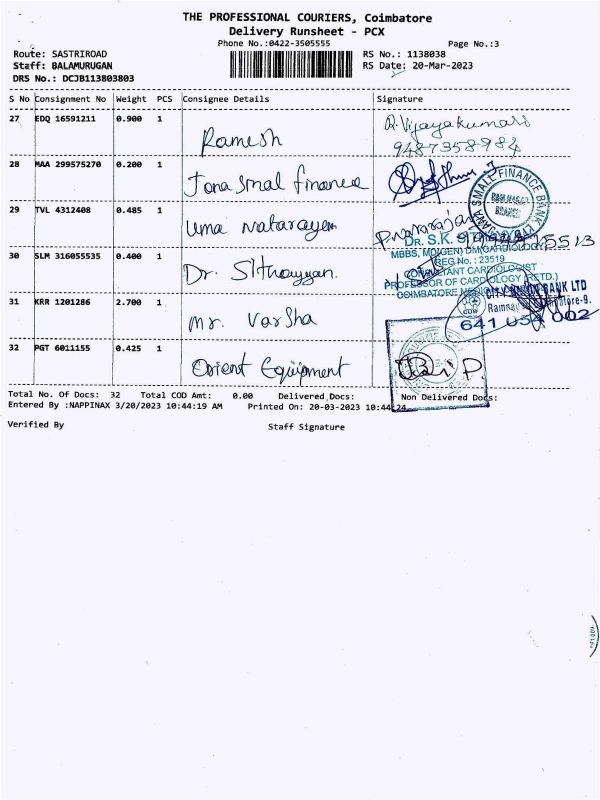 THE PROFESSIONAL COURIERS, Coimbatore
Delivery Runsheet - PCX
Phone No.:0422-3505555 Page No.:3
Route: SASTRIROAD RS No.: 1138038
Staff: BALAMURUGAN RS Date: 20-Mar-2023
DRS No.: DCJB113803803
S No Consignment No Weight PCS Consignee Details Signature
27 EDQ 16591211 0.900 1 Ramesh R.Vijayakumari
9487358984
28 MAA 299575270 0.200 1 Jana Smal finance
JANA SMALL FINANCE BANK LTD
RAM NAGAR
BRANCH
29 TVL 4312408 0.485 1 Uma natarayen P.natarajan
DR. S.K.
MBBS, MD(GEN) DM(CARDIOLOGY)
REG.No.: 23519
30 SLM 316055535 0.400 1 Dr. Sithayyan.
CONSULTANT CARDIOLOGIST
PROFESSOR OF CARDIOLOGY (RETD.)
COIMBATORE MEDICAL
31 KRR 1201286 2.700 1 mr. Varsha
CITY UNION BANK LTD
Ramnagar, Coimbatore-9.
641 054 002
32 PGT 6011155 0.425 1 Orient Equipment
Total No. Of Docs: 32 Total COD Amt: 0.00 Delivered Docs: Non Delivered Docs:
Entered By :NAPPINAX 3/20/2023 10:44:19 AM Printed On: 20-03-2023 10:44:24
Verified By Staff Signature